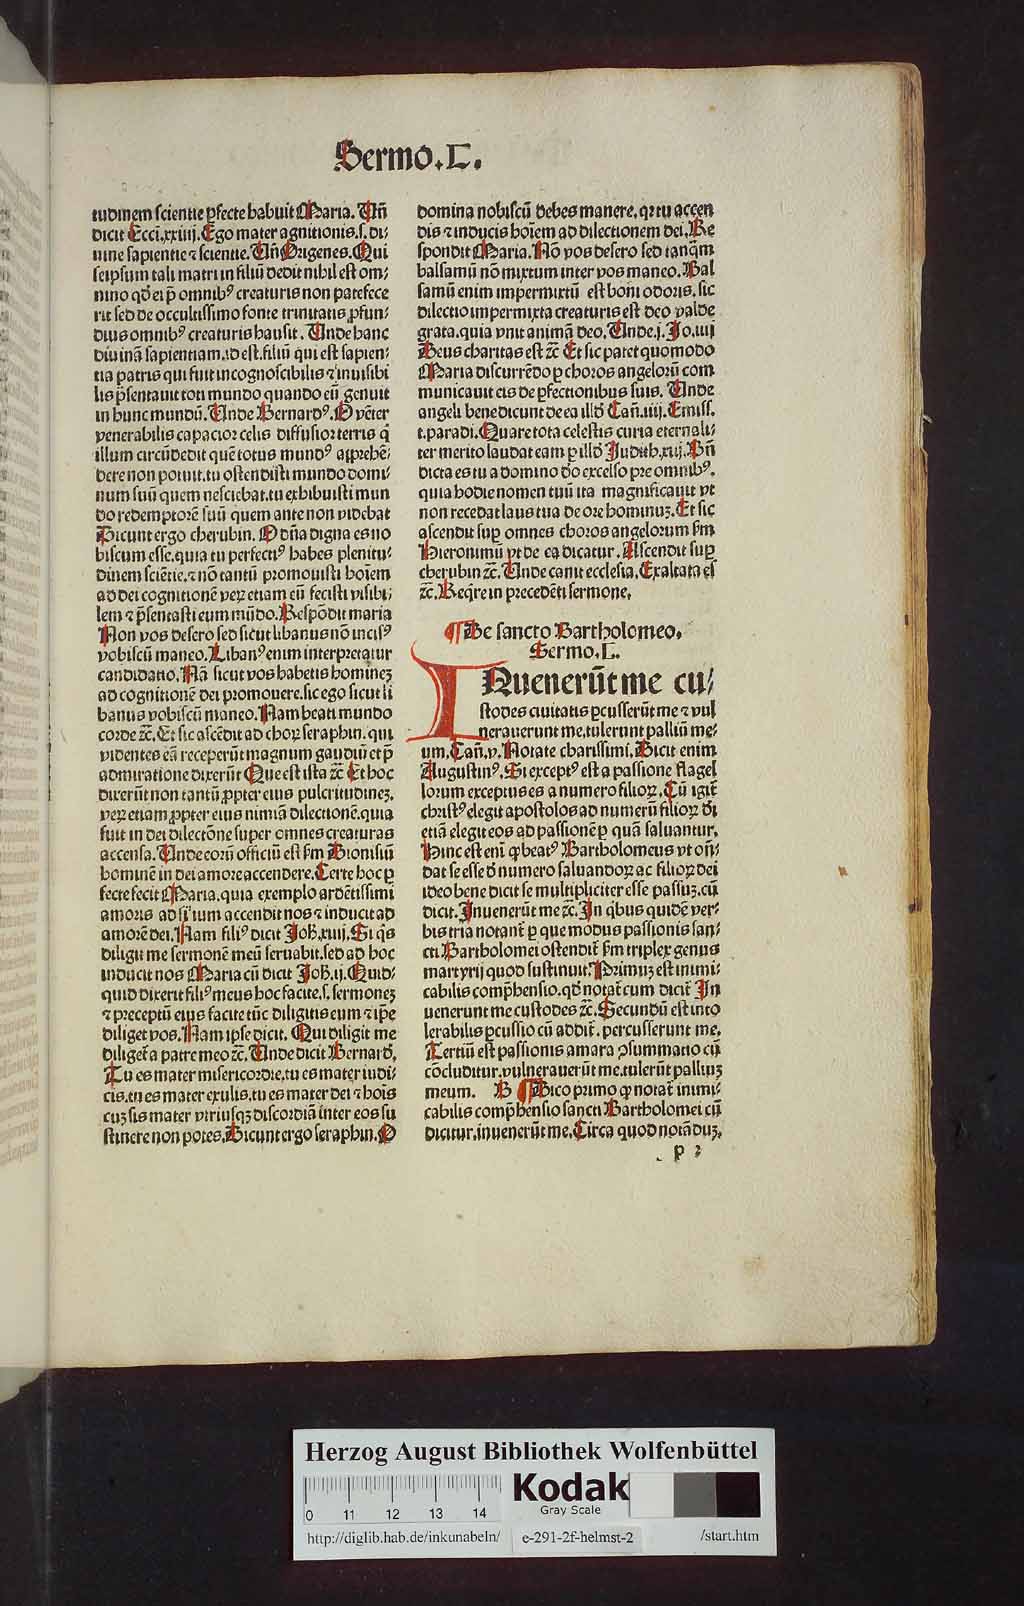 Sermo.L.
tudinem scientie ꝑfecte habuit Maria. Vñ
dicit Ecci.xxiiij. Ego mater agnitionis.s.di-
uine sapientie ⁊ scientie. Vñ Origenes. Qui
seipsum tali matri in filiū dedit nihil est om-
nino qd̕ ei p̄ omnibꝰ creaturis non patefece
rit sed de occultissimo fonte trinitatis ꝓfun-
dius omnibꝰ creaturis hausit. Unde hanc
diuinā sapientiam.id est.filiū qui est sapien-
tia patris qui fuit incognoscibilis ⁊ inuisibi
lis p̄sentauit toti mundo quando eū genuit
in hunc mundū. Unde Bernardꝰ. O vēter
venerabilis capacior celis diffusior terris q̇
illum circūdedit quē totus mundꝰ apprehē-
dere non potuit.tu ostendisti mundo domi-
num suū quem nesciebat.tu exhibuisti mun
do redemptorē suū quem ante non videbat
Dicunt ergo cherubin. O dn̄a digna es no
biscum esse.quia tu perfectiꝰ habes plenitu-
dinem sciētie.⁊ nō tantū promouisti hoīem
ad dei cognitionē veꝝ etiam eū fecisti visibi-
lem ⁊ p̄sentasti eum mūdo. Respōdit maria
Non vos desero sed sicut libanus nō incisꝰ
vobiscū maneo. Libanꝰ enim interpretatur
candidatio. Nā sicut vos habetis hominez
ad cognitionē dei promouere.sic ego sicut li
banus vobiscū maneo. Nam beati mundo
corde ⁊c. Et sic ascēdit ad choꝝ seraphin. qui
videntes eā receperūt magnum gaudiū et p̄
admiratione dixerūt Que est ista ⁊c Et hoc
dixerūt non tantū ꝓpter eius pulcritudinez.
veꝝ etiam ꝓpter eius nimiā dilectionē.quia
fuit in dei dilectōne super omnes creaturas
accensa. Unde eorū officiū est ẜm Dionisiū
hominē in dei amore accendere. Certe hoc ꝑ
fecte fecit Maria.quia exemplo ardētissimi
amoris ad filium accendit nos ⁊ inducit ad
amorē dei. Nam filiꝰ dicit Joh̄.xiiij. Si q̇s
diligit me sermonē meū seruabit.sed ad hoc
inducit nos Maria cū dicit Joh̄.ij. Quid-
quid dixerit filiꝰ meus hoc facite.s.sermonez
⁊ preceptū eius facite tūc diligitis eum ⁊ ip̄e
diliget vos. Nam ipse dicit. Qui diligit me
diliget̄ a patre meo ⁊c. Unde dicit Bernard̕.
Tu es mater misericordie.tu es mater iudi-
cis.tu es mater exulis.tu es mater dei ⁊ hoīs
cuz sis mater vtriusqꝫ discordiā inter eos su
stinere non potes. Dicunt ergo seraphin. O
domina nobiscū debes manere.qꝛ tu accen
dis ⁊ inducis hoīem ad dilectionem dei. Re
spondit Maria. Nō vos desero sed tanq̄m
balsamū nō mixtum inter vos maneo. Bal
samū enim impermixtū est boni odoris. sic
dilectio impermixta creaturis est deo valde
grata.quia vnit animā deo. Unde.j. Jo.iiij
Deus charitas est ⁊c Et sic patet quomodo
Maria discurrēdo ꝑ choros angelorū com
municauit eis de ꝑfectionibus suis. Unde
angeli benedicunt de ea illd̕ Cañ.iiij. Emiss.
t.paradi. Quare tota celestis curia eternali-
ter merito laudat eam ꝑ illd̕ Judith.xiij. Bñ
dicta es tu a domino d̕o excelso pre omnibꝰ.
quia hodie nomen tuū ita magnificauit vt
non recedat laus tua de ore hominuz. Et sic
ascendit suꝑ omnes choros angelorum ẜm
Hieronimū vt de ea dicatur. Ascendit suꝑ
cherubin ⁊c. Unde canit ecclesia. Exaltata es
⁊c. Req̇re in precedēti sermone.
¶ De sancto Bartholomeo.
Sermo.L.
INuenerūt me cu-
stodes ciuitatis ꝑcusserūt me ⁊ vul
nerauerunt me.tulerunt palliū me-
um. Cañ.v. Notate charissimi. Dicit enim
Augustinꝰ. Si exceptꝰ est a passione flagel
lorum exceptus es a numero filioꝝ. Cū igit̄
christꝰ elegit apostolos ad numerū filioꝝ dei
etiā elegit eos ad passionē ꝑ quā saluantur.
Hinc est eni ꝙ beatꝰ Bartholomeus vt oñ-
dat se esse d̕ numero saluandoꝝ ac filioꝝ dei
ideo bene dicit se multipliciter esse passuz.cū
dicit. Inuenerūt me ⁊c. In q̇bus quidē ver-
bis tria notant̄ ꝑ que modus passionis san-
cti Bartholomei ostendit̄ ẜm triplex genus
martyrij quod sustinuit. Primuz est inimi-
cabilis comp̄hensio.qd̕ notat̄ cum dicit̄ In
uenerunt me custodes ⁊c. Secundū est into
lerabilis ꝑcussio cū addit̄. percusserunt me.
Tertiū est passionis amara ꝯsummatio cū
cōcluditur.vulnerauerūt me.tulerūt palliuz
meum. B ¶ Dico primo ꝙ notat̄ inimi-
cabilis comp̄hensio sancti Bartholomei cū
dicitur.inuenerūt me. Circa quod notāduz.
p 2
Herzog August Bibliothek Wolfenbüttel
0 11 12 13 14
Kodak
Gray Scale
http://diglib.hab.de/inkunabeln/ e-291-2f-helmst-2 /start.htm